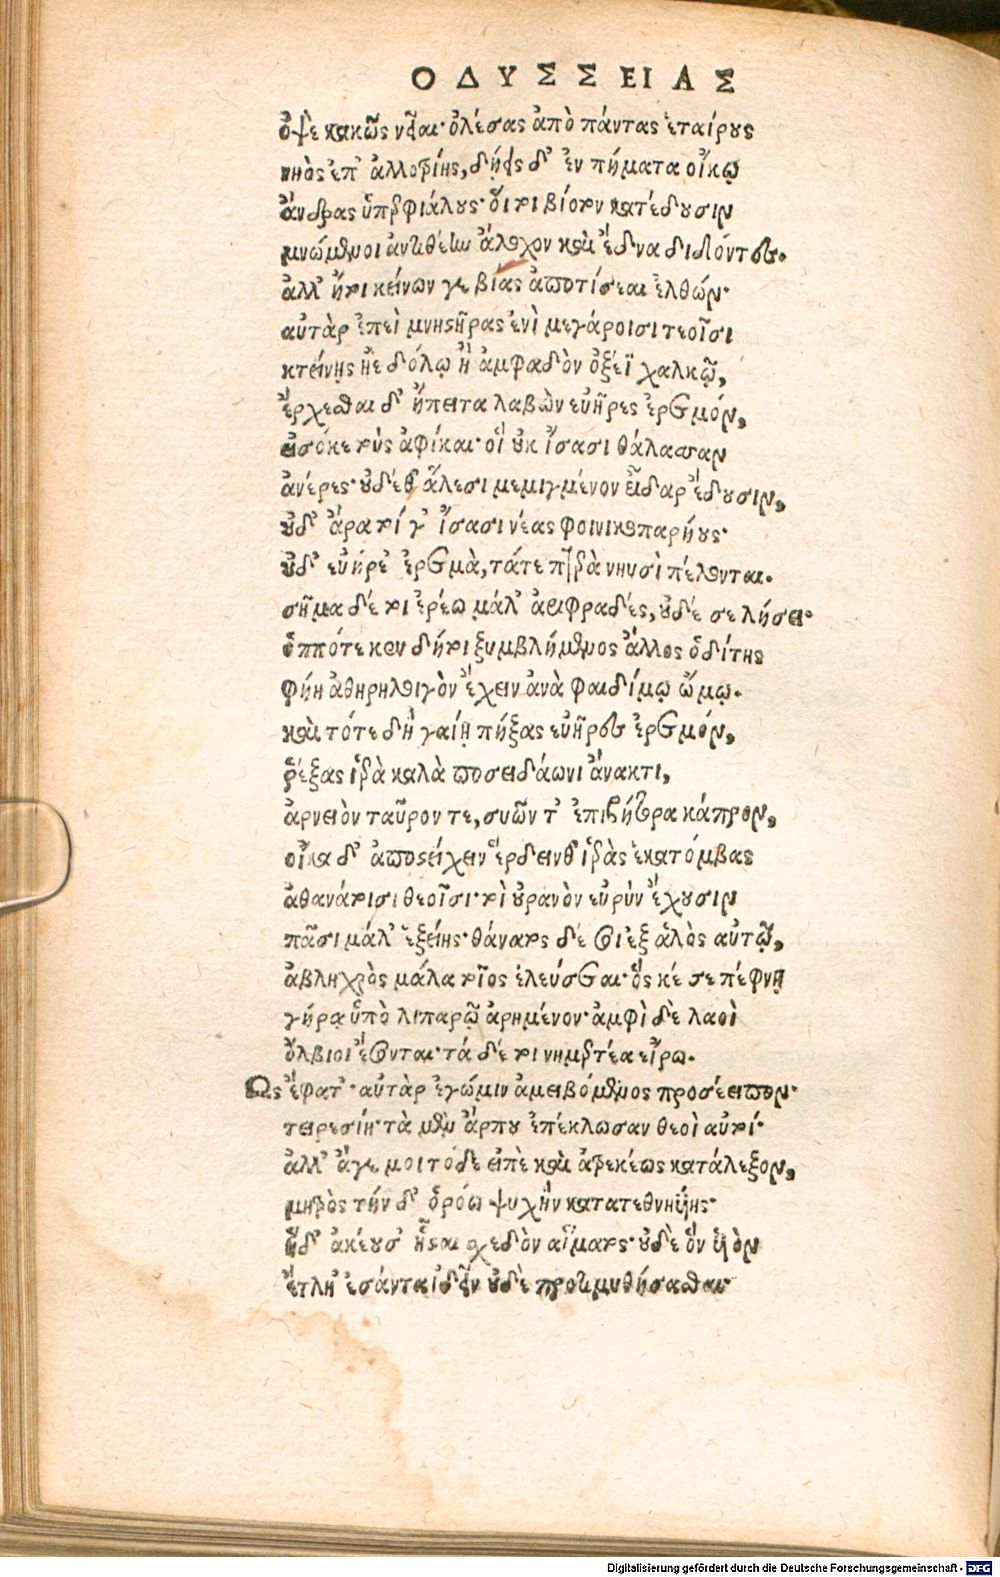 ΟΔΥΣΣΕΙΑΣ
ὀψὲ κακῶς νεῖαι· ὀλέσας ἀπὸ πάντας ἑταίρους
νηὸς ἐπ' ἀλλοτρίης, δήεις δ' ἐν πήματα οἴκῳ
ἄνδρας ὑπερφιάλους· οἵ τοι βίοτον κατέδουσιν
μνώμενοι ἀντιθέην ἄλοχον καὶ ἕδνα διδόντες.
ἀλλ' ἤτοι κείνων γε βίας ἀποτίσεαι ἐλθών·
αὐτὰρ ἐπεὶ μνηστῆρας ἐνὶ μεγάροισι τεοῖσι
κτείνῃς ἠὲ δόλῳ ἢ ἀμφαδὸν ὀξέϊ χαλκῷ,
ἔρχεσθαι δ' ἤπειτα λαβὼν εὐῆρες ἐρετμόν,
εἰσόκε τοὺς ἀφίκαι· οἳ οὐκ ἴσασι θάλασσαν
ἀνέρες· οὐδέ θ' ἅλεσι μεμιγμένον εἶδαρ ἔδουσιν,
οὐδ' ἄρα τοί γ' ἴσασι νέας φοινικοπαρήους·
οὐδ' εὐήρε' ἐρετμὰ, τάτε πτερὰ νηυσὶ πέλονται.
σῆμα δέ τοι ἐρέω μάλ' ἀειφραδές, οὐδέ σε λήσει·
ὁππότε κεν δή τοι ξυμβλήμενος ἄλλος ὁδίτης
φήῃ ἀθηρηλοιγὸν ἔχειν ἀνὰ φαιδίμῳ ὤμῳ.
καὶ τότε δὴ γαίῃ πήξας εὐῆρες ἐρετμόν,
ῥέξας ἱερὰ καλὰ ποσειδάωνι ἄνακτι,
ἀρνειὸν ταῦρον τε, συῶν τ' ἐπιβήτορα κάπρον,
οἴκα δ' ἀποστείχειν ἔρδειν θ' ἱερὰς ἑκατόμβας
ἀθανάτοισι θεοῖσι· τοὶ οὐρανὸν εὐρὺν ἔχουσιν
πᾶσι μάλ' ἑξείης· θάνατος δέ τοι ἐξ ἁλὸς αὐτῷ,
ἀβληχρὸς μάλα τοῖος ἐλεύσεται· ὅς κέ σε πέφνῃ
γήρᾳ ὑπὸ λιπαρῷ ἀρημένον· ἀμφὶ δὲ λαοὶ
ὄλβιοι ἔσονται· τά δέ τοι νημερτέα εἴρω.
Ὣς ἔφατ'· αὐτὰρ ἐγώ μιν ἀμειβόμενος προσέειπον·
τειρεσίη· τὰ μὲν ἄρ που ἐπέκλωσαν θεοὶ αὐτοί·
ἀλλ' ἄγε μοι τόδε εἰπὲ καὶ ἀτρεκέως κατάλεξον,
μητρὸς τήν δ' ὁρόω ψυχὴν κατατεθνηυίης·
ἥδ' ἀκέουσ' ἧσται σχεδὸν αἵματος· οὐδὲ ὃν υἱὸν
ἔτλη ἐσάντα ἰδεῖν οὐδὲ προτιμυθήσασθαι·
Digitalisierung gefördert durch die Deutsche Forschungsgemeinschaft - DFG